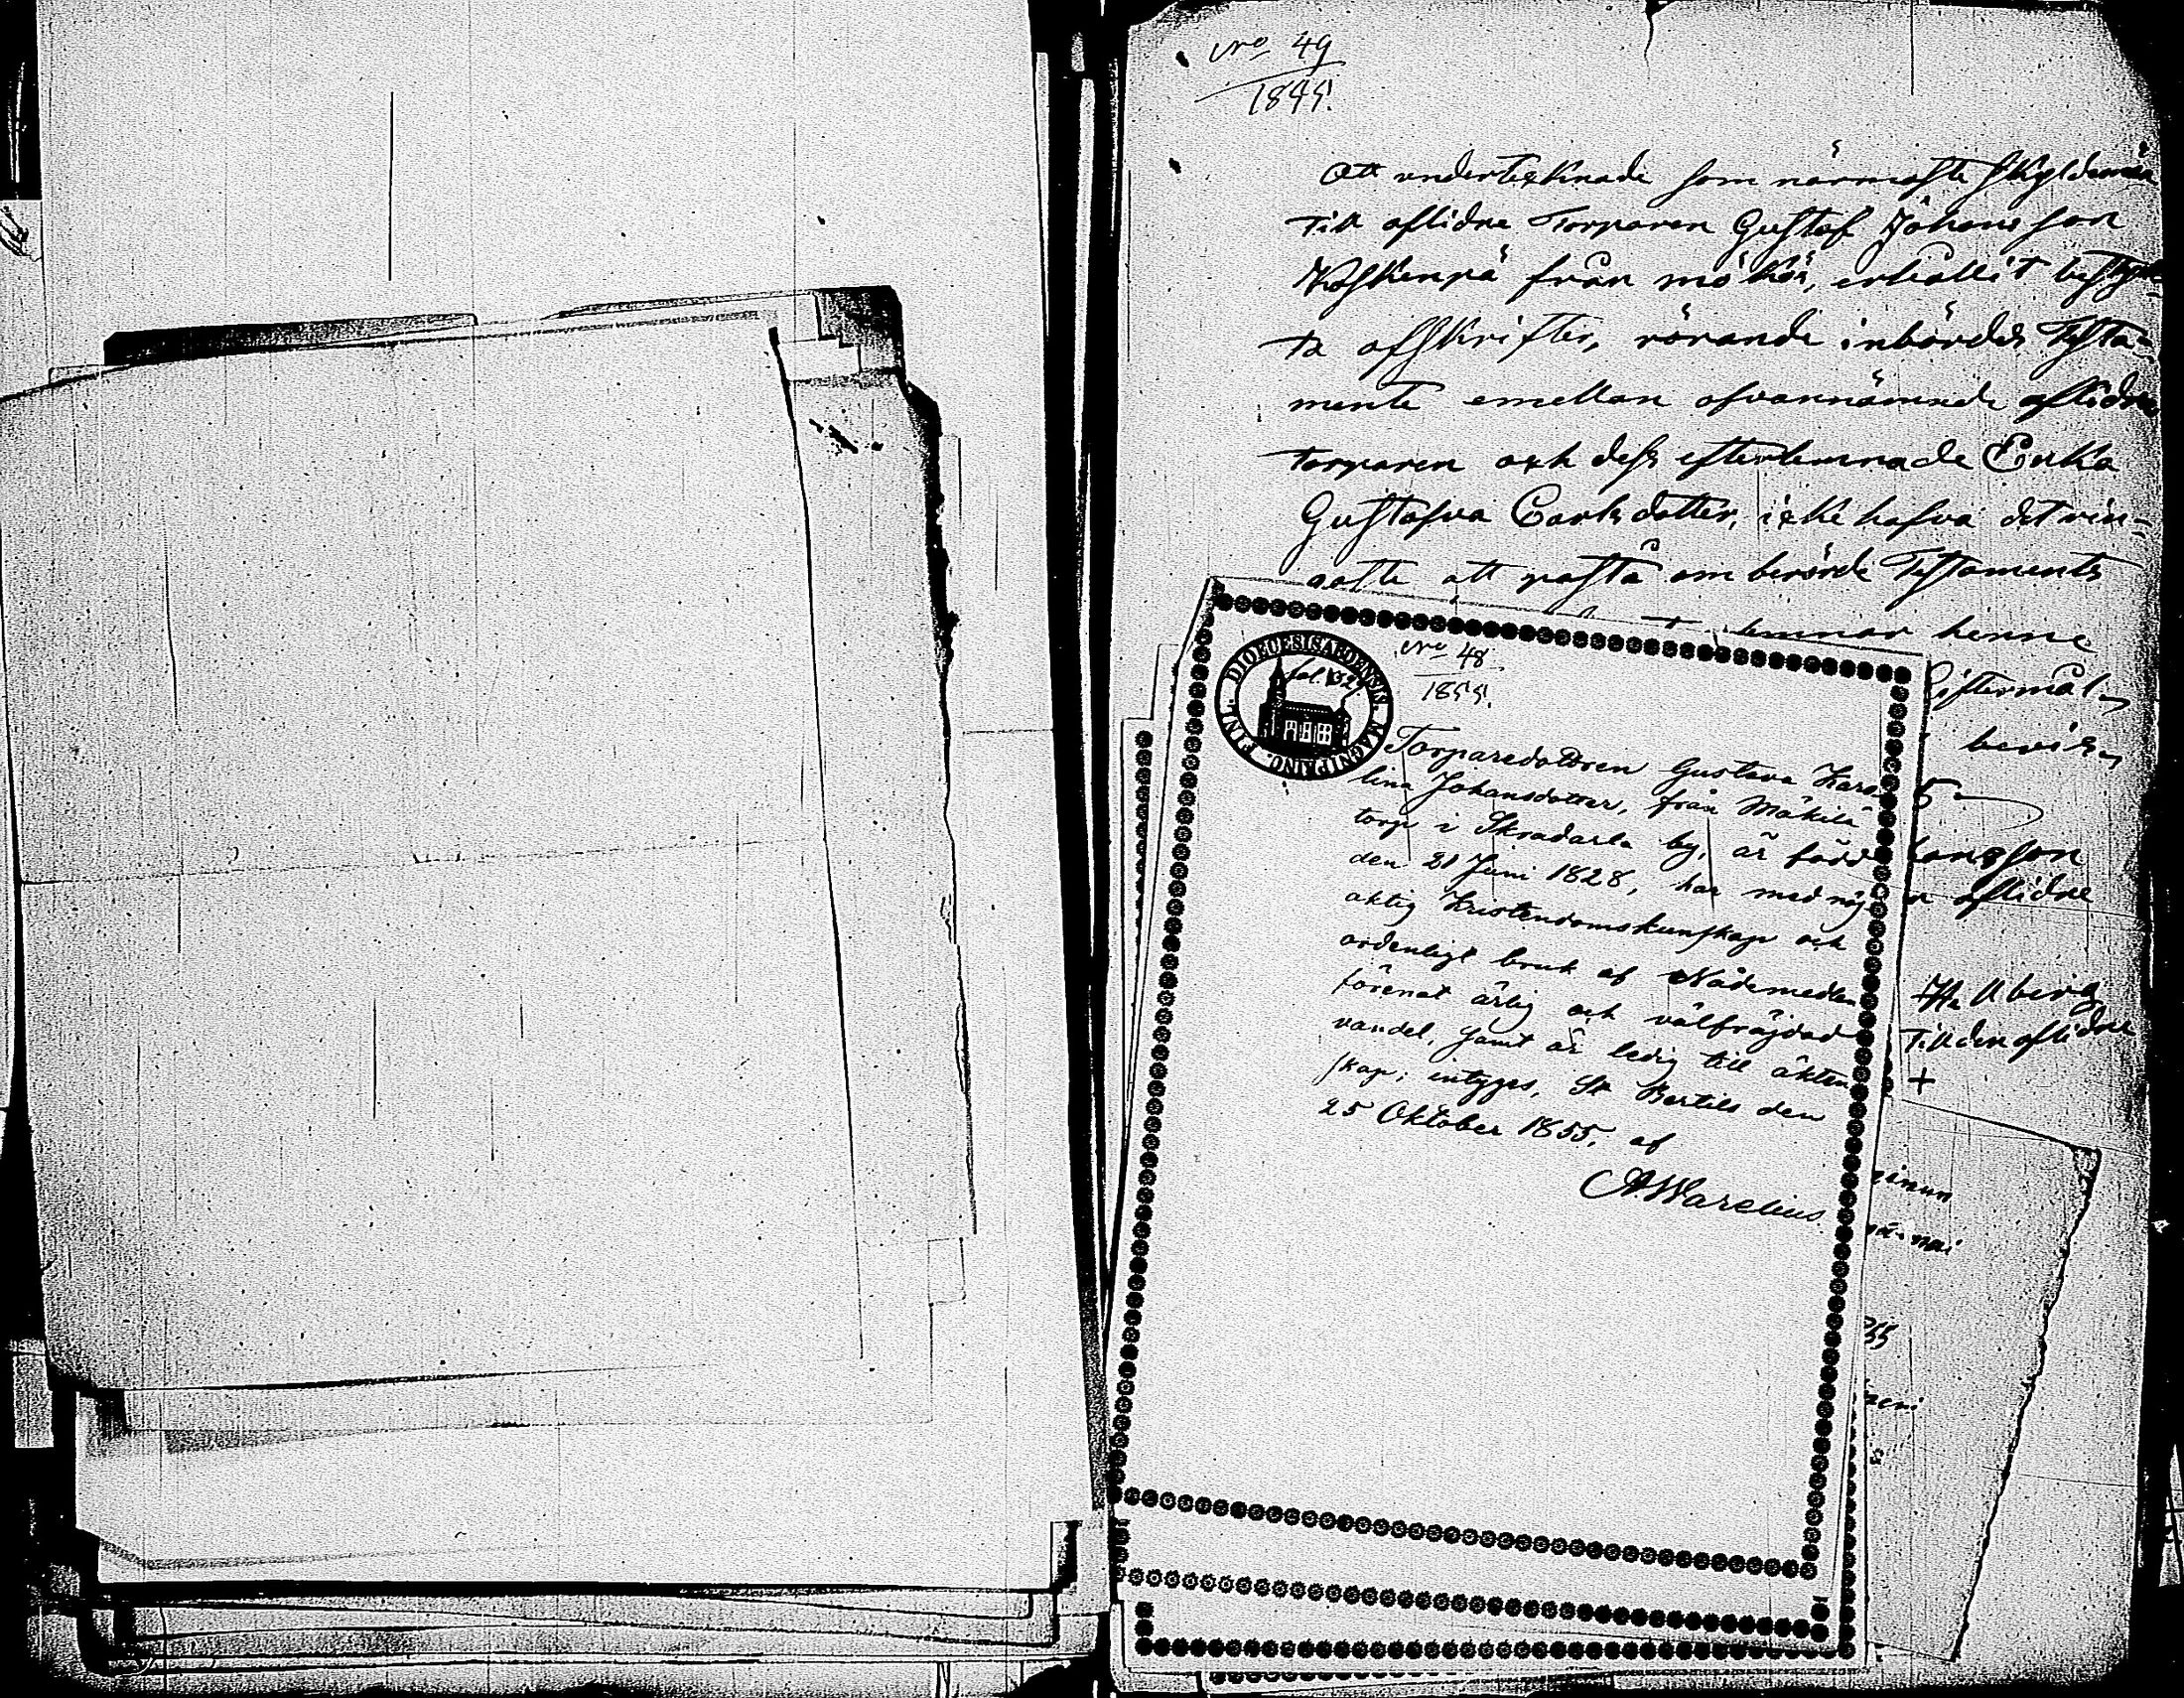 No 49
1855.
Att undertecknade som närmaste skyldemän
till aflidne Torparen Gustaf Johansson
Koskenpä från mökö, erhållit bestyrk-
ta afskrifter, rörande inbördes Testa-
mente emellan ofvannämnde aflidne
torparen och dess efterlemnade Enka
Gustafva Carlsdotter, icke hafva det rin-
gaste att påstå om berörde Testamente
lemnar henne
Giftermål
bevis
5
hansson
aflidne
Hellberg
till den aflidne
+
DIOECESIS ABOENSIS. MAGNI PRINC. FINL.
fol. 132.
No 48
1855.
Torparedottren Gustava Karo
lina Johansdotter, från Mäkilä
torp i Skradarla by, är född
den 21 Juni 1828, har med nöj
aktig Kristendomskunskap och
ordenligt bruk af Nådemedlen
förenat ärlig och välfräjdad
vandel, samt är ledig till äkten
skap; intyges, St Bertils den
25 Oktober 1855, af
AWarelius